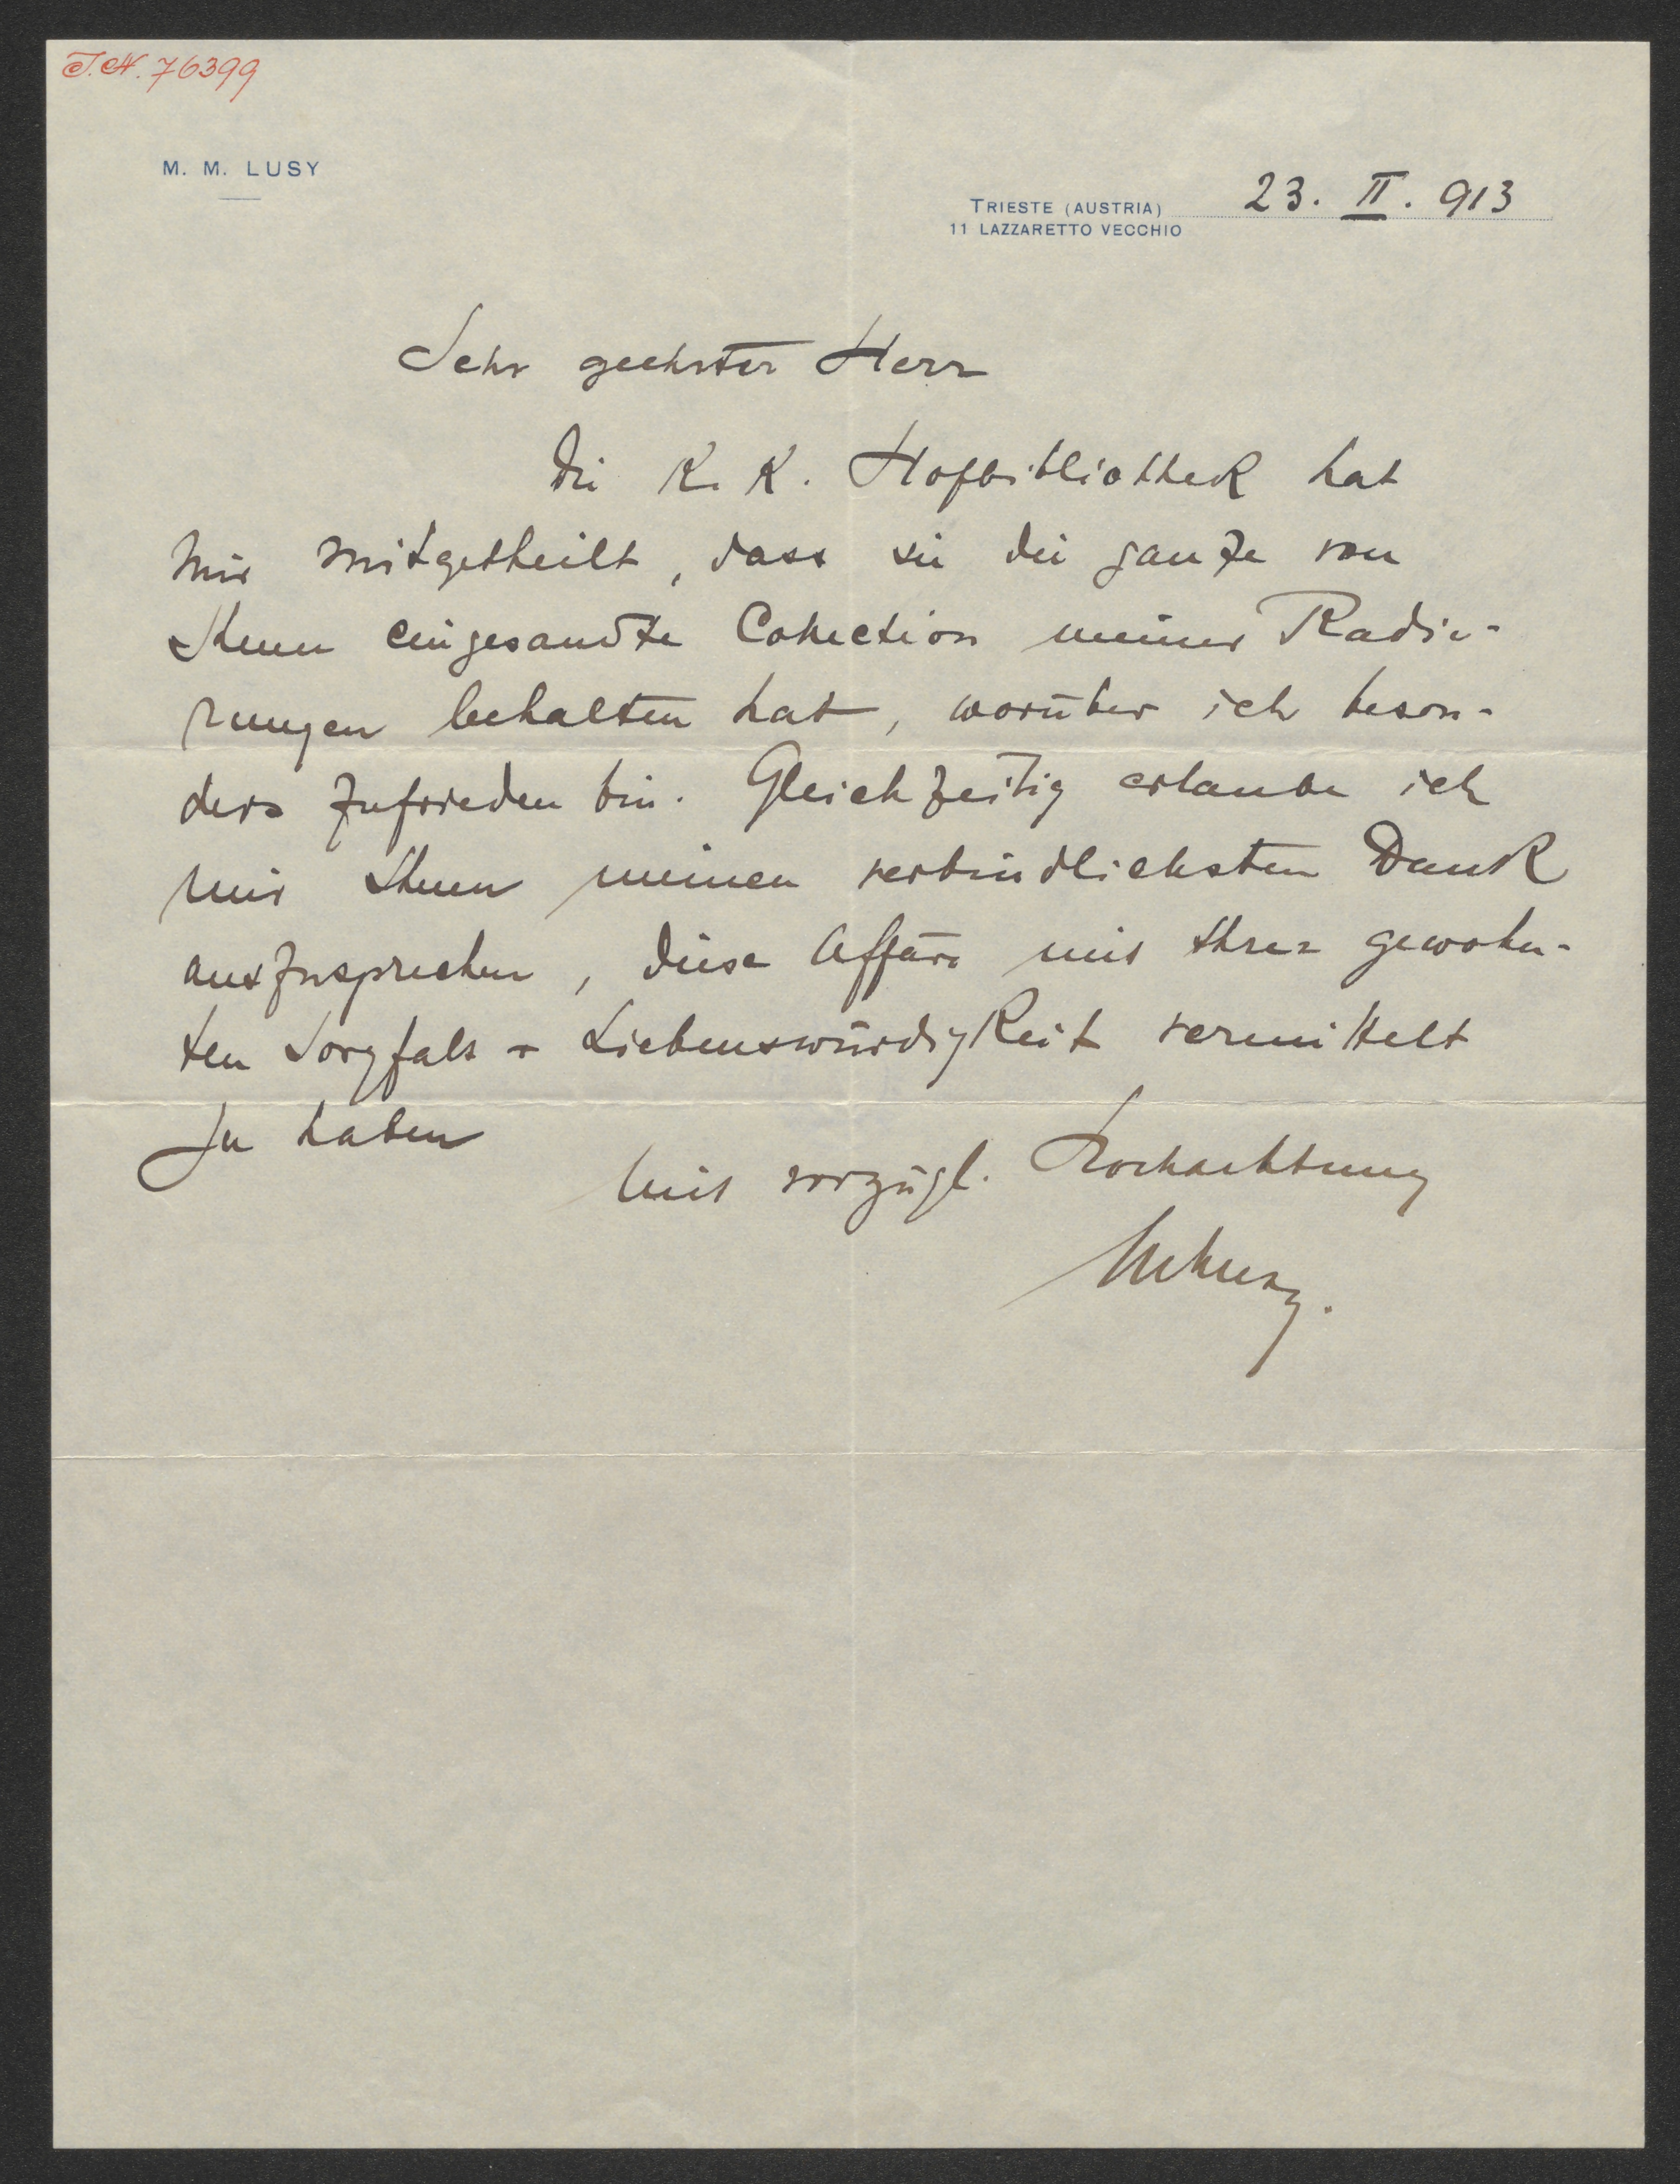 I.N. 76399
M. M. LUSY
TRIESTE (AUSTRIA) 23. II. 913
11 LAZZARETTO VECCHIO
Sehr geehrter Herr
Die K. K. Hofbibliothek hat
mir mitgetheilt, dass sie die ganze von
Ihnen eingesandte Collection meiner Radie-
rungen behalten hat, worüber ich beson-
ders zufrieden bin. Gleichzeitig erlaube ich
mir Ihnen meinen verbindlichsten Dank
auszusprechen, diese Affäre mit Ihrer gewohn-
ten Sorgfalt + Liebenswürdigkeit vermittelt
zu haben
Mit vorzügl. Hochachtung